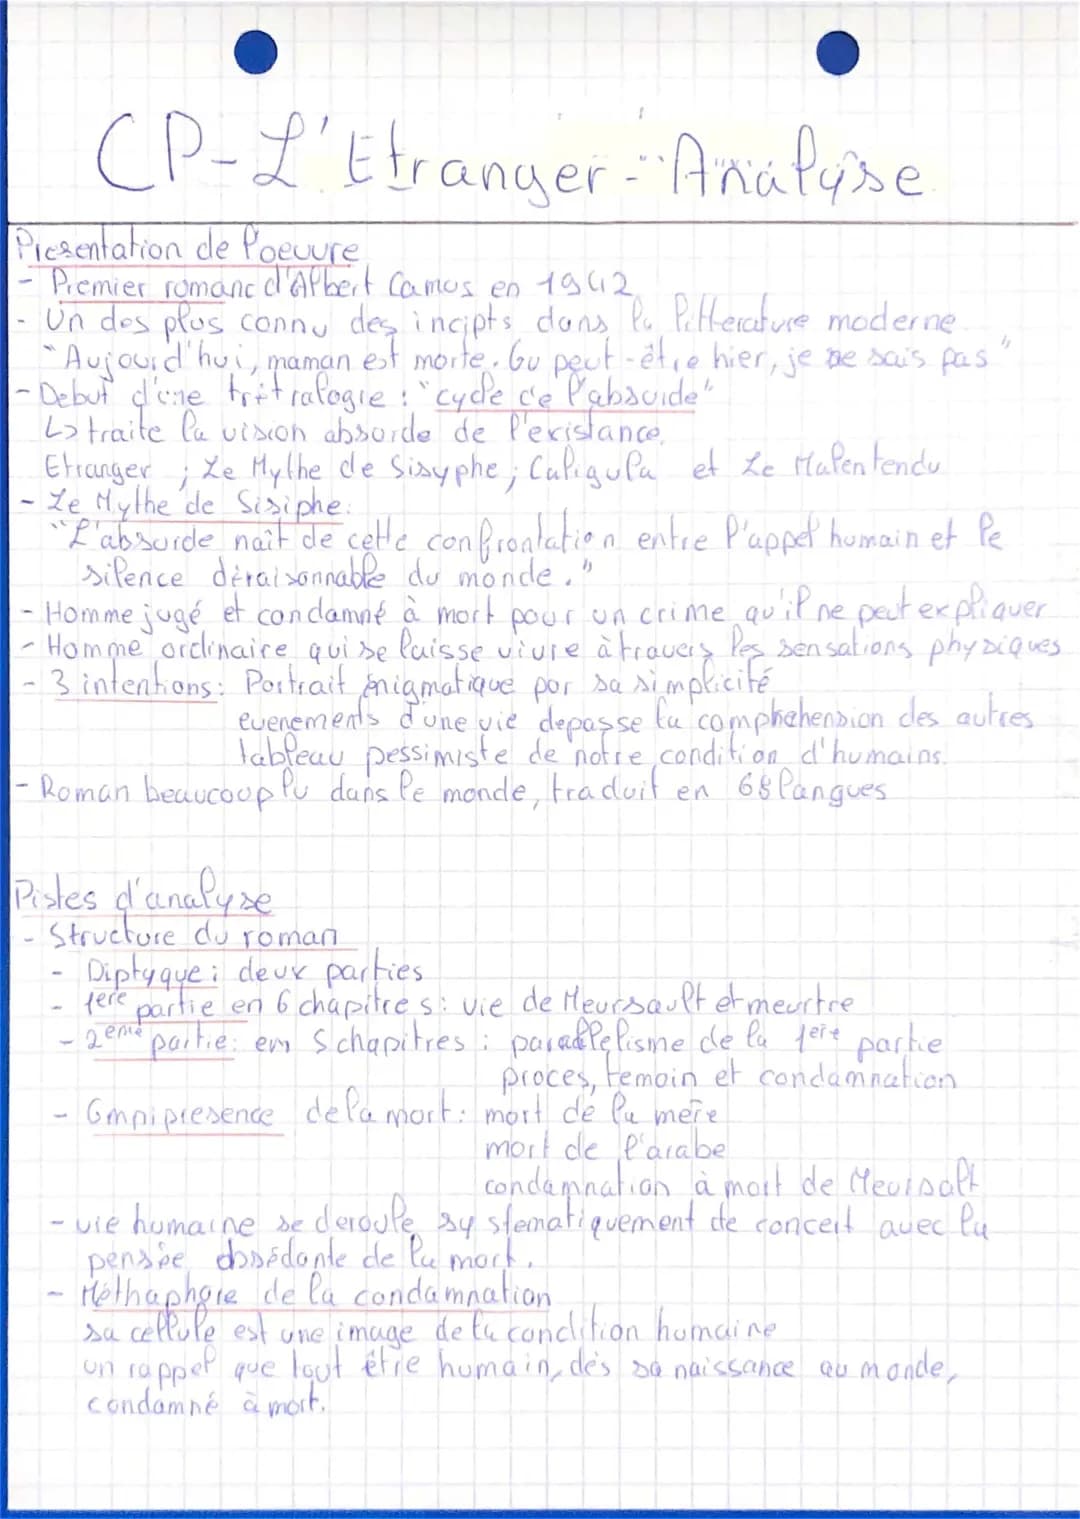 CP-L'Etranger - Analyse
Presentation de l'oeuvre
- Premier romanc d'Albert Camus en 1942
- Un des plus connu des incipts dans la litterature moderne
"Aujourd'hui, maman est morte. Ou peut-être hier, je ne sais pas"
- Debut d'une tritralogie : "cycle de l'absurde"
↳ traite la vision absorde de l'existance.
Etranger ; Le Mythe de Sisyphe ; Caligula et Le Malentendu
- Le Mythe de Sisiphe:
"L'absurde naît de cette confrontation entre l'appel humain et le
silence déraisonnable du monde."
- Homme jugé et condamné à mort pour un crime qu'il ne peut expliquer
- Homme ordinaire qui se laisse vivre à travers les sensations physiques
- 3 intentions: Portrait énigmatique par sa simplicité
evenements d'une vie depasse la comphehension des autres
tableau pessimiste de notre condition d'humains.
- Roman beaucoup lu dans le monde, traduit en 68 langues
Pistes d'analyse
- Structure du roman
- Diptyque : deux parties
- 1ere partie en 6 chapitres : vie de Meursault et meurtre
- 2eme partie: em 5 chapitres : parallelisme de la 1ere partie
proces, temoin et condamnation
- Omnipresence de la mort : mort de la mère
mort de l'arabe
condamnation à mort de Meursalt
- vie humaine se deroule systematiquement de concert avec la
pensée obsédante de la mort.
- Méthaphore de la condamnation
sa cellule est une image de la condition humaine
un rappel que tout être humain, dés sa naissance au monde,
condamné à mort.